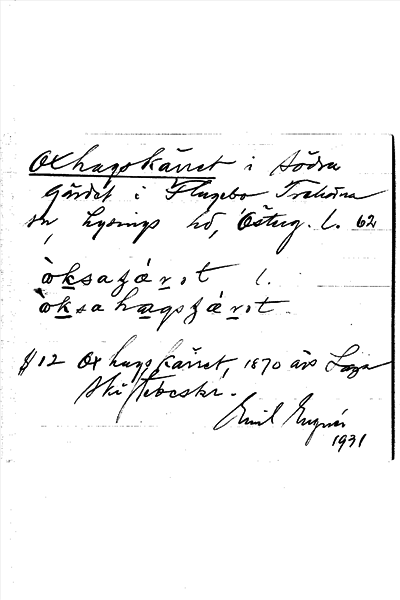 Oxhagskärret i Södra
Gärdet i Flugebo Trehörna
sn, Lysings hd, Östug. l. 62
òksaʃǽrot l.
òksahagsʃǽrot
#12 Oxhagskärret, 1870 års Laga
skiftebeskr.
Emil
1931